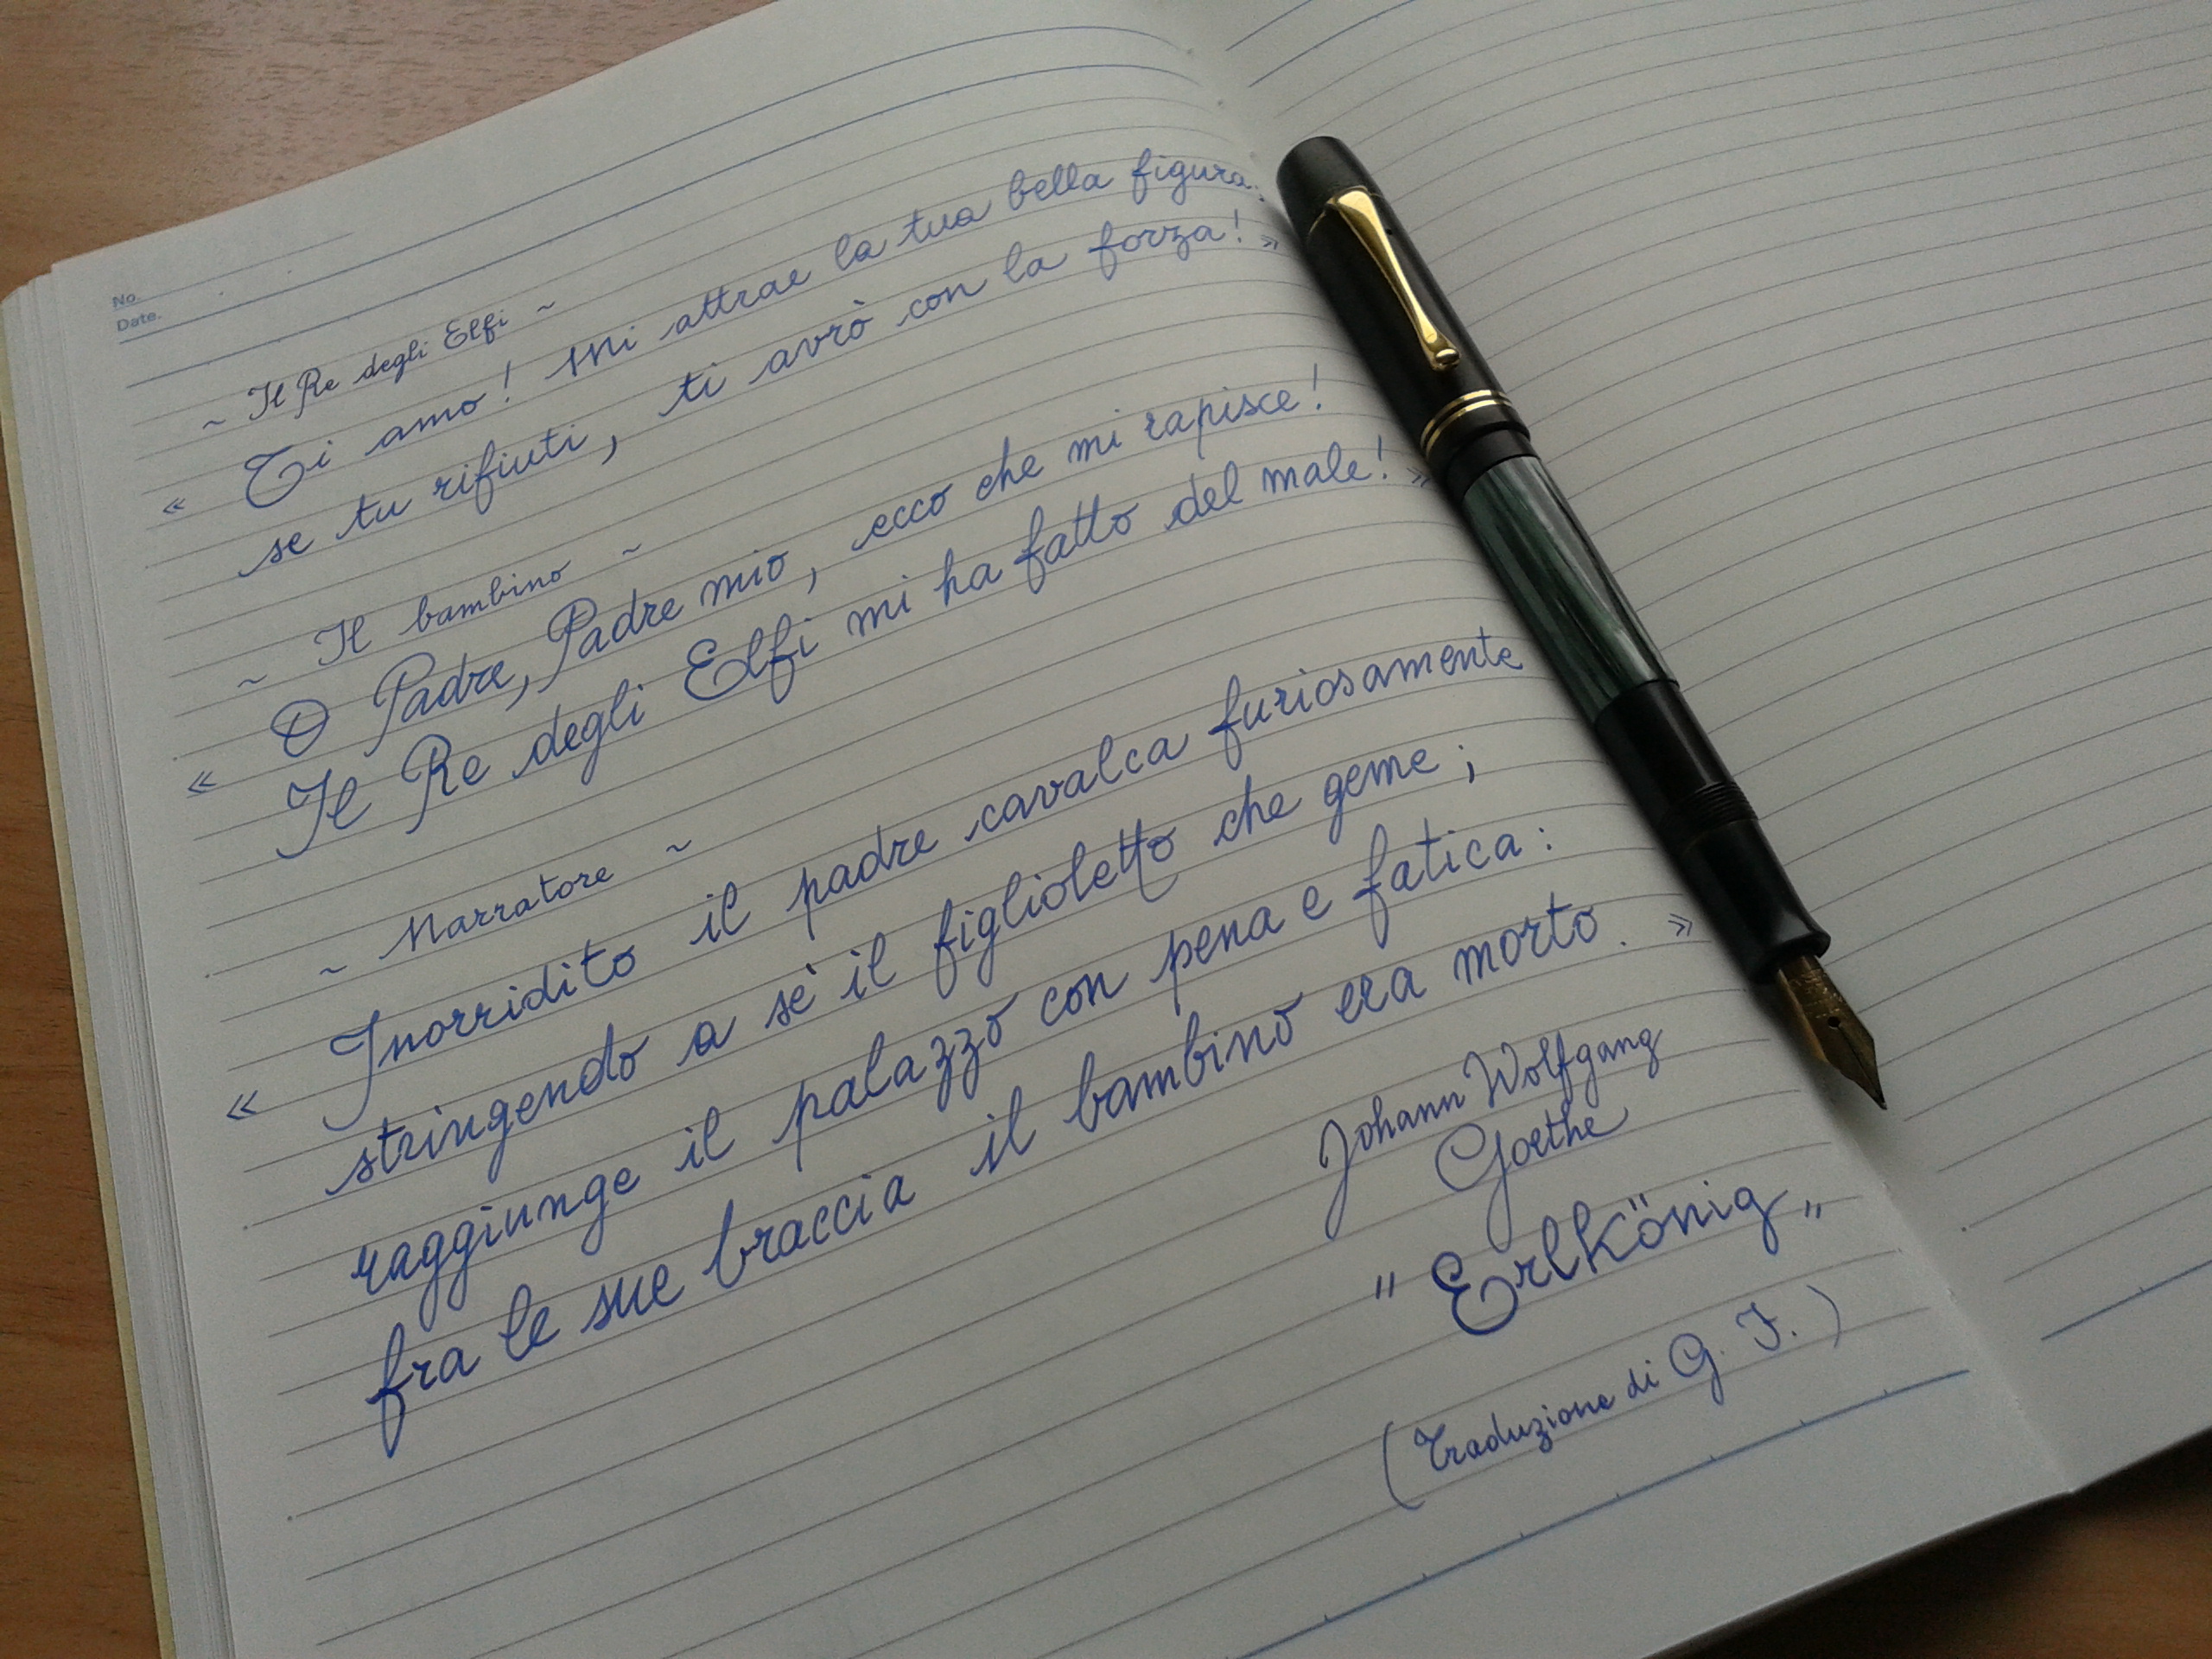 No.
Date.
~ Il Re degli Elfi ~
« Ti amo! Mi attrae la tua bella figura;
se tu rifiuti, ti avrò con la forza! »
~ Il bambino ~
« O Padre, Padre mio, ecco che mi rapisce!
Il Re degli Elfi mi ha fatto del male! »
~ Narratore ~
« Inorridito il padre cavalca furiosamente
stringendo a sè il figlioletto che geme;
raggiunge il palazzo con pena e fatica:
fra le sue braccia il bambino era morto. »
Johann Wolfgang
Goethe
"Erlkönig„
(Traduzione di G. I.)